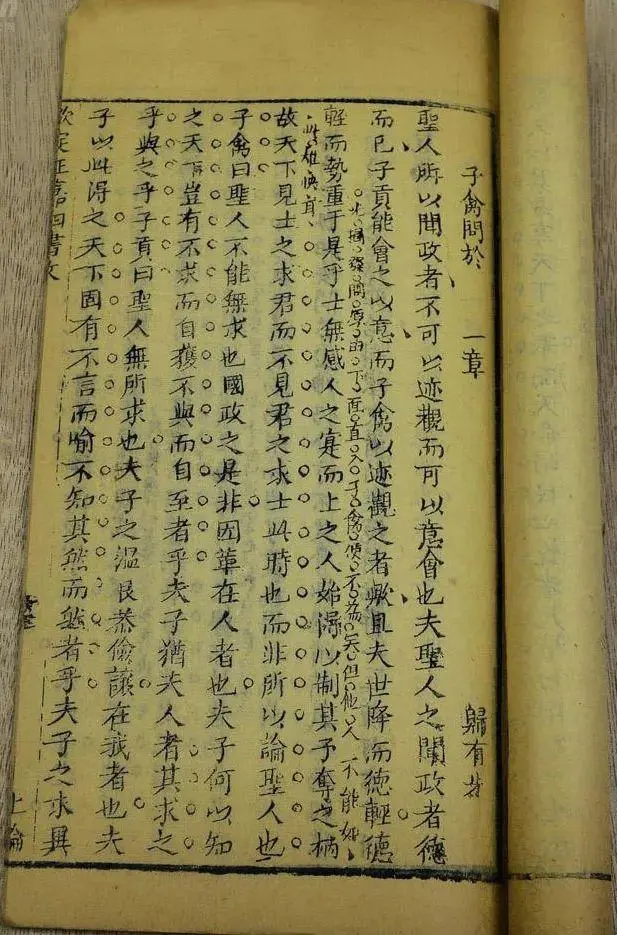 子禽問於 一章 歸有光
聖人所以聞政者不可以迹觀而可以意會也夫聖人之聞政者德
而已子貢能會之以意而子禽以迹觀之者歟且夫世降而德輕德
輕而勢重于是乎士無感人之寔而上之人始得以制其予奪之柄
故天下見士之求君而不見君之求士此時也而非所以論聖人也
子禽曰聖人不能無求也國政之是非因革在人者也夫子何以知
之天下豈有不求而自獲不與而自至者乎夫子猶夫人者其求之
乎與之乎子貢曰聖人無所求也夫子之温良恭儉讓在我者也夫
子以此得之天下固有不言而喻不知其然而然者乎夫子之求異
欽定正嘉四書文
上論